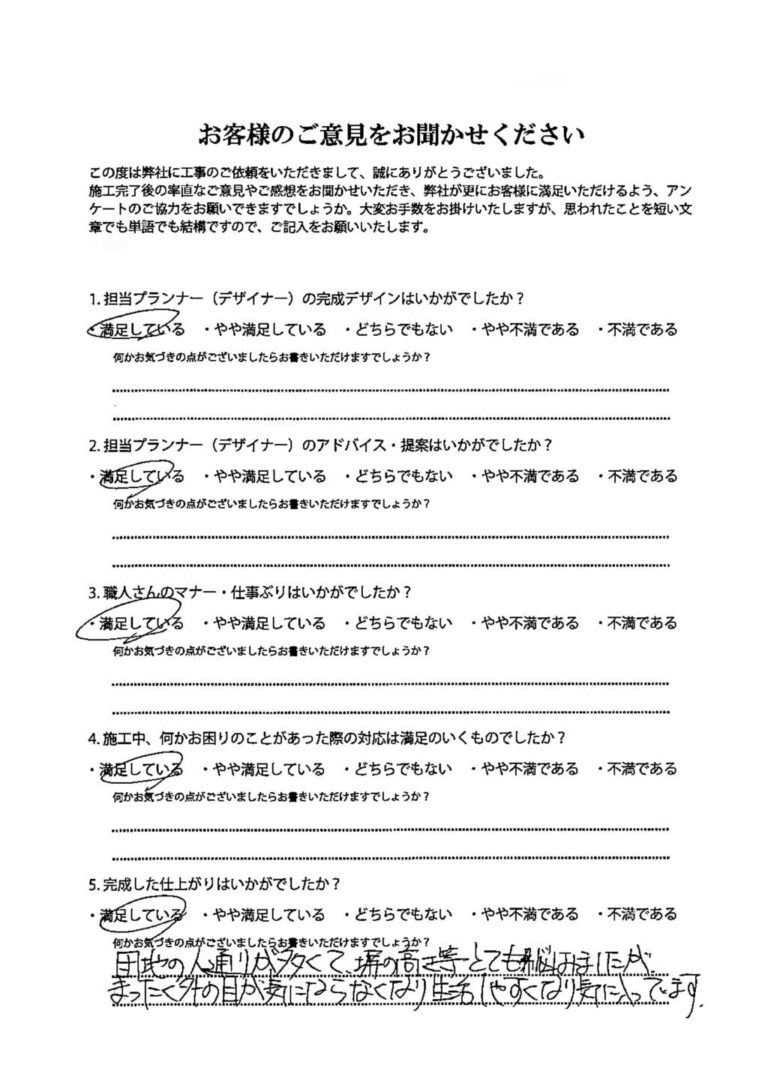 お客様のご意見をお聞かせください
この度は弊社に工事のご依頼をいただきまして、誠にありがとうございました。
施工完了後の率直なご意見やご感想をお聞かせいただき、弊社が更にお客様に満足いただけるよう、アン
ケートのご協力をお願いできますでしょうか。大変お手数をお掛けいたしますが、思われたことを短い文
章でも単語でも結構ですので、ご記入をお願いいたします。
1. 担当プランナー（デザイナー）の完成デザインはいかがでしたか？
・満足している ・やや満足している ・どちらでもない ・やや不満である ・不満である
何かお気づきの点がございましたらお書きいただけますでしょうか？
2. 担当プランナー（デザイナー）のアドバイス・提案はいかがでしたか？
・満足している ・やや満足している ・どちらでもない ・やや不満である ・不満である
何かお気づきの点がございましたらお書きいただけますでしょうか？
3. 職人さんのマナー・仕事ぶりはいかがでしたか？
・満足している ・やや満足している ・どちらでもない ・やや不満である ・不満である
何かお気づきの点がございましたらお書きいただけますでしょうか？
4. 施工中、何かお困りのことがあった際の対応は満足のいくものでしたか？
・満足している ・やや満足している ・どちらでもない ・やや不満である ・不満である
何かお気づきの点がございましたらお書きいただけますでしょうか？
5. 完成した仕上がりはいかがでしたか？
・満足している ・やや満足している ・どちらでもない ・やや不満である ・不満である
何かお気づきの点がございましたらお書きいただけますでしょうか？
団地の人通りが多くて、塀の高さ等とても悩みましたが、
まったく外の目が気にならなくなり生活しやすくなり気に入っています.